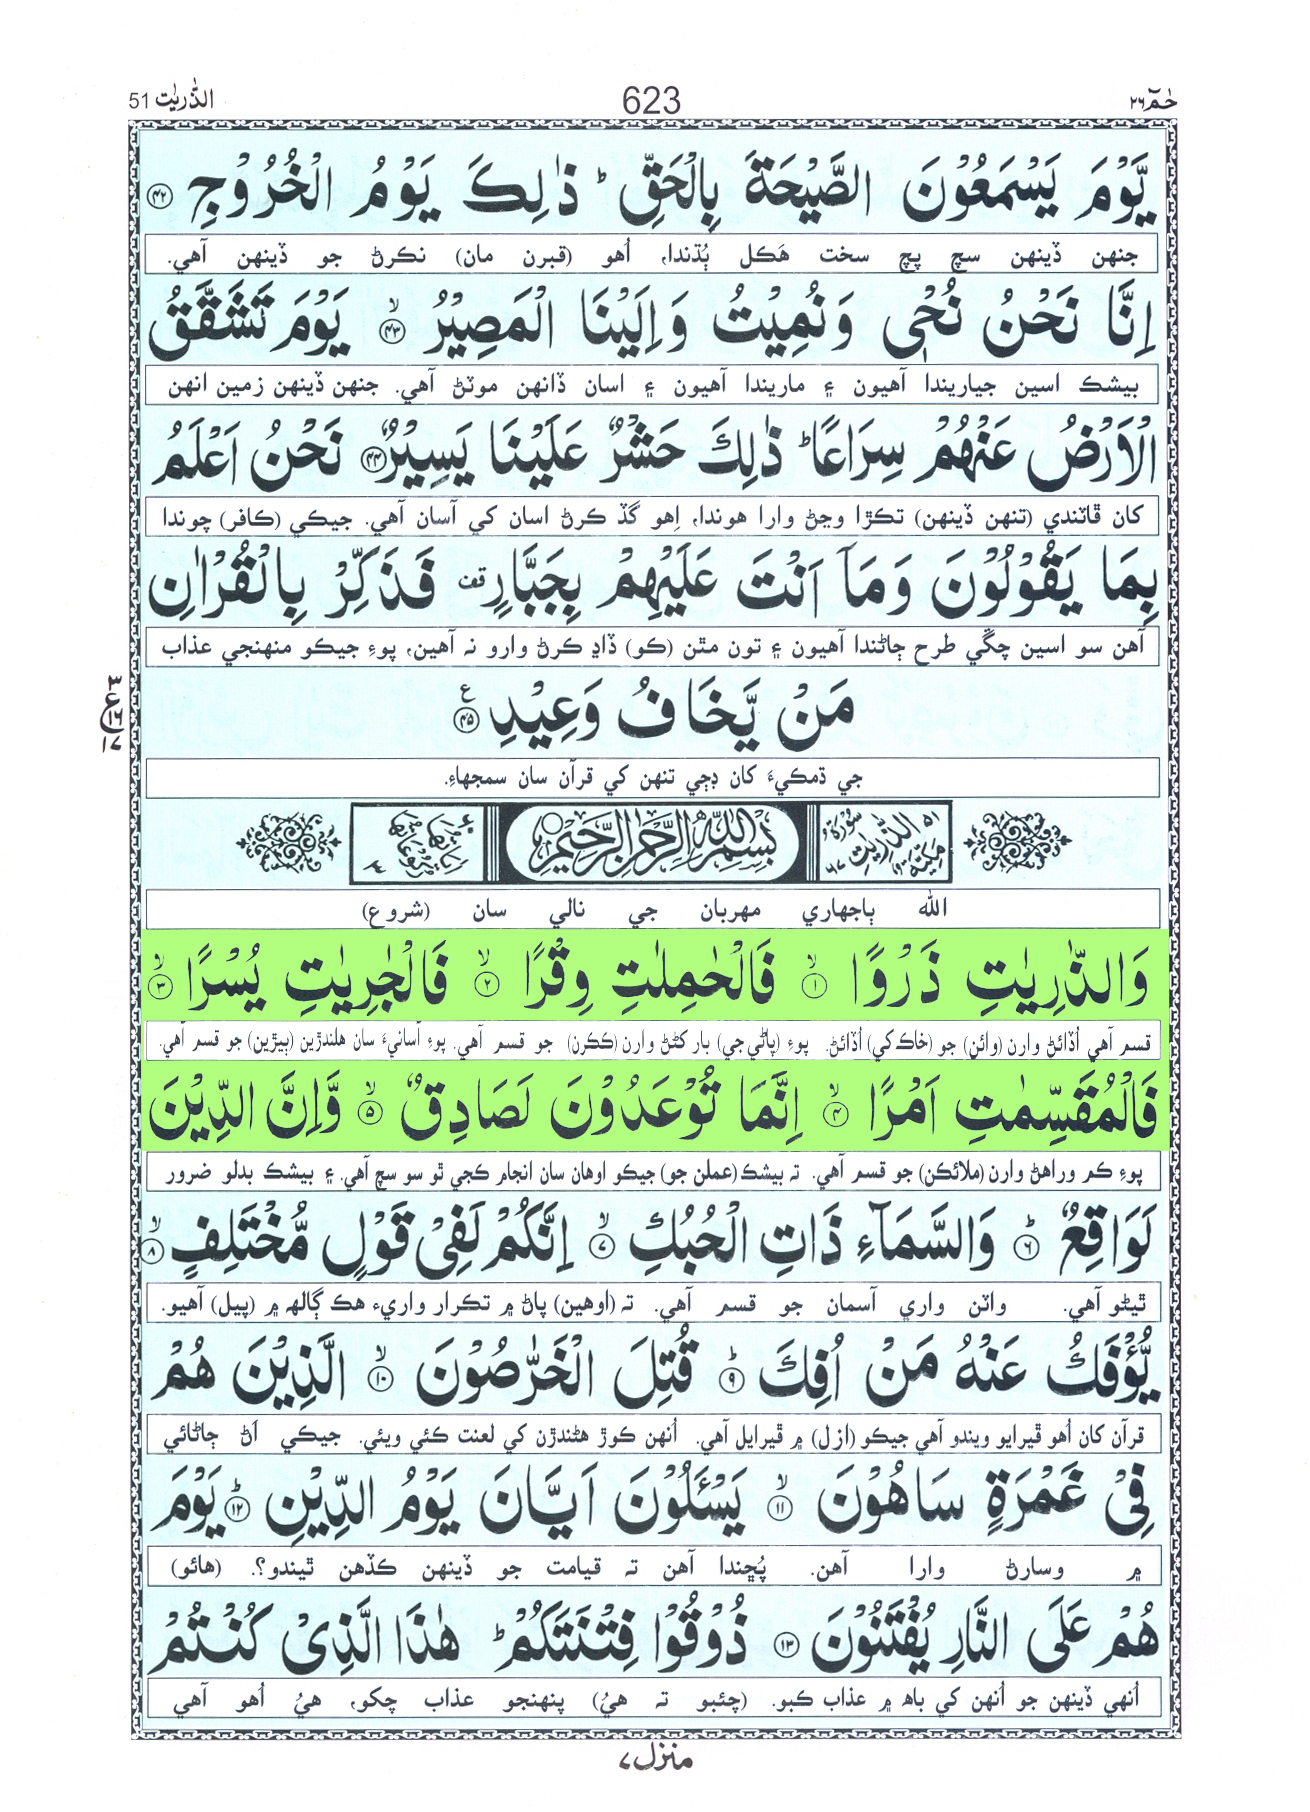 حٰمٓ ٢٦ 623 الذّٰریٰت 51
یَّوْمَ یَسْمَعُوْنَ الصَّیْحَةَ بِالْحَقِّ ؕ ذٰلِكَ یَوْمُ الْخُرُوْجِ ﴿۴۲﴾
جنهن ڏينهن سچ پچ سخت هَڪل ٻُڌندا، اُهو (قبرن مان) نڪرڻ جو ڏينهن آهي.
اِنَّا نَحْنُ نُحْیٖ وَنُمِیْتُ وَاِلَیْنَا الْمَصِیْرُ ﴿ۙ۴۳﴾ یَوْمَ تَشَقَّقُ
بيشڪ اسين جياريندا آهيون ۽ ماريندا آهيون ۽ اسان ڏانهن موٽڻ آهي. جنهن ڏينهن زمين انهن
الْاَرْضُ عَنْهُمْ سِرَاعًا ؕ ذٰلِكَ حَشْرٌ عَلَیْنَا یَسِیْرٌ ﴿۴۴﴾ نَحْنُ اَعْلَمُ
کان ڦاٽندي (تنهن ڏينهن) تڪڙا وڃڻ وارا هوندا، اِهو گڏ ڪرڻ اسان کي آسان آهي. جيڪي (ڪافر) چوندا
بِمَا یَقُوْلُوْنَ وَمَاۤ اَنْتَ عَلَیْهِمْ بِجَبَّارٍ قف فَذَكِّرْ بِالْقُرْاٰنِ
آهن سو اسين چڱي طرح ڄاڻندا آهيون ۽ تون مٿن (ڪو) ڏاڍ ڪرڻ وارو نه آهين، پوءِ جيڪو منهنجي عذاب
مَنْ یَّخَافُ وَعِیْدِ ﴿۴۵﴾ ع
جي ڌمڪيءَ کان ڊڄي تنهن کي قرآن سان سمجهاءِ.
۵۱ سُوْرَةُ الذّٰرِیٰتِ مَكِّیَّةٌ ٦٧ بِسْمِ اللّٰهِ الرَّحْمٰنِ الرَّحِیْمِ اٰیَاتُهَا ٦٠ رُكُوْعَاتُهَا ٣
الله ٻاجهاري مهربان جي نالي سان (شروع)
وَالذّٰرِیٰتِ ذَرْوًا ﴿ۙ۱﴾ فَالْحٰمِلٰتِ وِقْرًا ﴿ۙ۲﴾ فَالْجٰرِیٰتِ یُسْرًا ﴿ۙ۳﴾
قسم آهي اُڏائڻ وارن (وائن) جو (خاڪ کي) اُڏائڻ. پوءِ (پاڻي جي) بار کڻڻ وارن (ڪڪرن) جو قسم آهي. پوءِ آسانيءَ سان هلندڙين (ٻيڙين) جو قسم آهي.
فَالْمُقَسِّمٰتِ اَمْرًا ﴿ۙ۴﴾ اِنَّمَا تُوْعَدُوْنَ لَصَادِقٌ ﴿ۙ۵﴾ وَّاِنَّ الدِّیْنَ
پوءِ ڪم وراهڻ وارن (ملائڪن) جو قسم آهي. ته بيشڪ (عملن جو) جيڪو اوهان سان انجام ڪجي ٿو سو سچ آهي. ۽ بيشڪ بدلو ضرور
لَوَاقِعٌ ﴿ؕ۶﴾ وَالسَّمَآءِ ذَاتِ الْحُبُكِ ﴿ۙ۷﴾ اِنَّكُمْ لَفِیْ قَوْلٍ مُّخْتَلِفٍ ﴿ۙ۸﴾
ٿيڻو آهي. واٽن واري آسمان جو قسم آهي. ته (اوهين) پاڻ ۾ تڪرار واريءَ هڪ ڳالهه ۾ (پيل) آهيو.
یُّؤْفَكُ عَنْهُ مَنْ اُفِكَ ﴿ؕ۹﴾ قُتِلَ الْخَرّٰصُوْنَ ﴿ۙ۱۰﴾ الَّذِیْنَ هُمْ
قرآن کان اُهو ڦيرايو ويندو آهي جيڪو (ازل) ۾ ڦيرايل آهي. اُنهن ڪوڙ هڻندڙن کي لعنت ڪئي ويئي. جيڪي اَڻ ڄاڻائي
فِیْ غَمْرَةٍ سَاهُوْنَ ﴿ۙ۱۱﴾ یَسْـَٔلُوْنَ اَیَّانَ یَوْمُ الدِّیْنِ ﴿ؕ۱۲﴾ یَوْمَ
۾ وسارڻ وارا آهن. پُڇندا آهن ته قيامت جو ڏينهن ڪڏهن ٿيندو؟. (هائو)
هُمْ عَلَی النَّارِ یُفْتَنُوْنَ ﴿۱۳﴾ ذُوْقُوْا فِتْنَتَكُمْ ؕ هٰذَا الَّذِیْ كُنْتُمْ
اُنهي ڏينهن جو اُنهن کي باهه ۾ عذاب ڪبو. (چئبو ته هيُ) پنهنجو عذاب چکو، هيُ اُهو آهي
منزل ۷